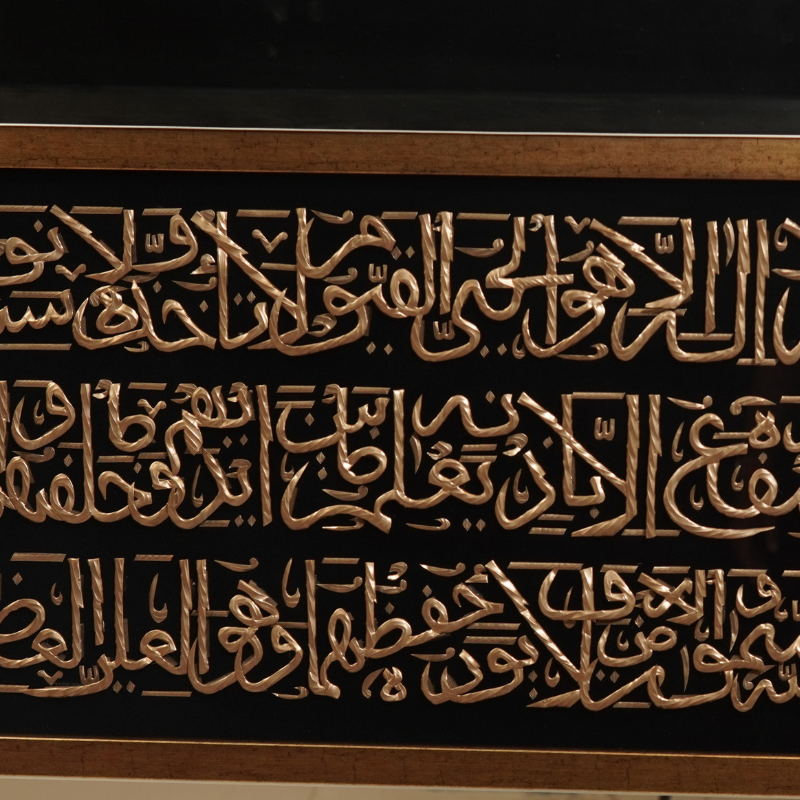 إله إلا هو الحي القيوم لا تأخذه سنة ولا نوم
يشفع عنده إلا بإذنه يعلم ما بين أيديهم وما خلفهم
السموات والأرض ولا يؤوده حفظهما وهو العلي العظيم